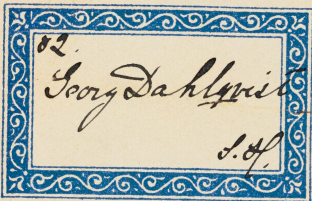 82.
Georg Dahlqvist
S. H.